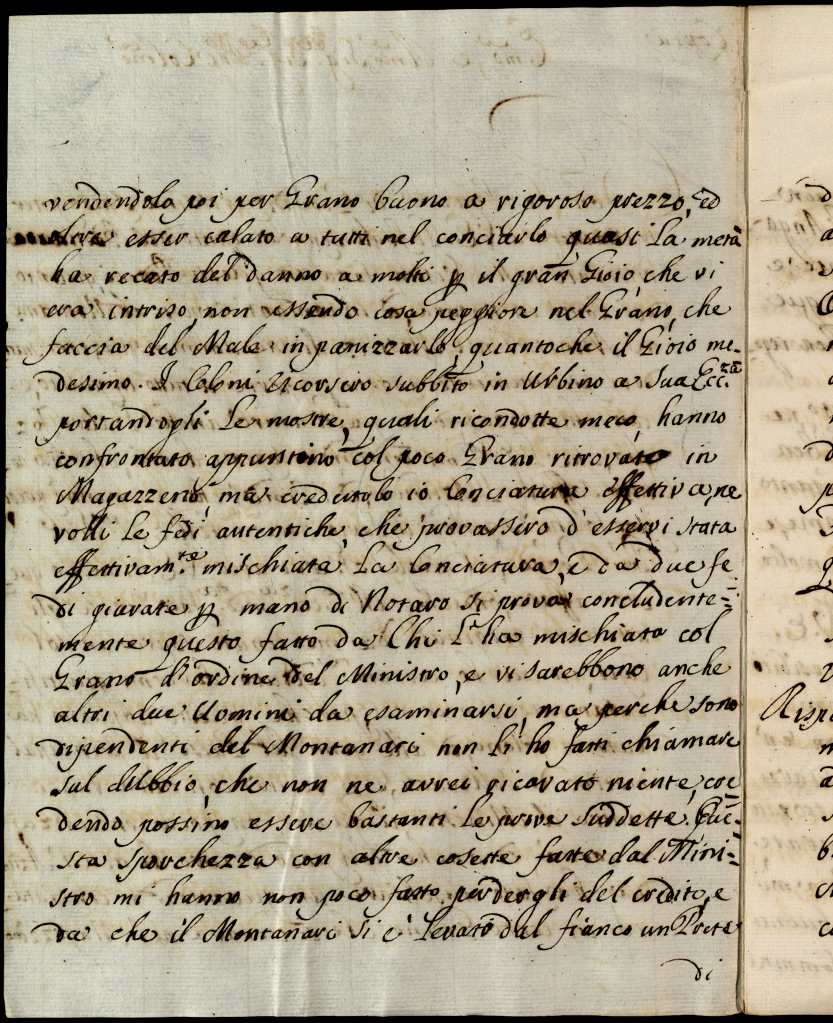 vendendolo poi per Grano buono a rigoroso prezzo, ed
oltre esser calato a tutti nel conciarlo quasi la metà
ha recato del danno a molti p il gran Gioio, che vi
era intriso, non essendo cosa peggiore nel Grano, che
faccia del Male in panizzarlo, quantoche il Gioio me-
desimo. I Coloni ricorsero subbito in Urbino a Sua Ecc.za
portandogli le mostre, quali ricondotte meco, hanno
confrontato appuntino col poco Grano ritrovato in
Magazzeno, ma credutolo io Conciatura effettiva, ne
volli le fedi autentiche, che provassero d'esservi stata
effettivam.te mischiata la Conciatura, e da due fe
di giurate p mano di Notaro si prova concludente=
mente questo fatto da Chi l'ha mischiata col
Grano d'ordine del Ministro, e vi sarebbono anche
altri due Uomini da esaminarsi, ma perche sono
dipendenti del Montanari non li ho fatti chiamare
sul dubbio, che non ne avrei ricavato niente, cre
dendo possino essere bastanti le prove suddette. Que=
sta sporchezza con altre cosette fatte dal Mini=
stro mi hanno non poco fatto perdergli del credito, e
da che il Montanari si è levato dal fianco un Prete
di
Rispo